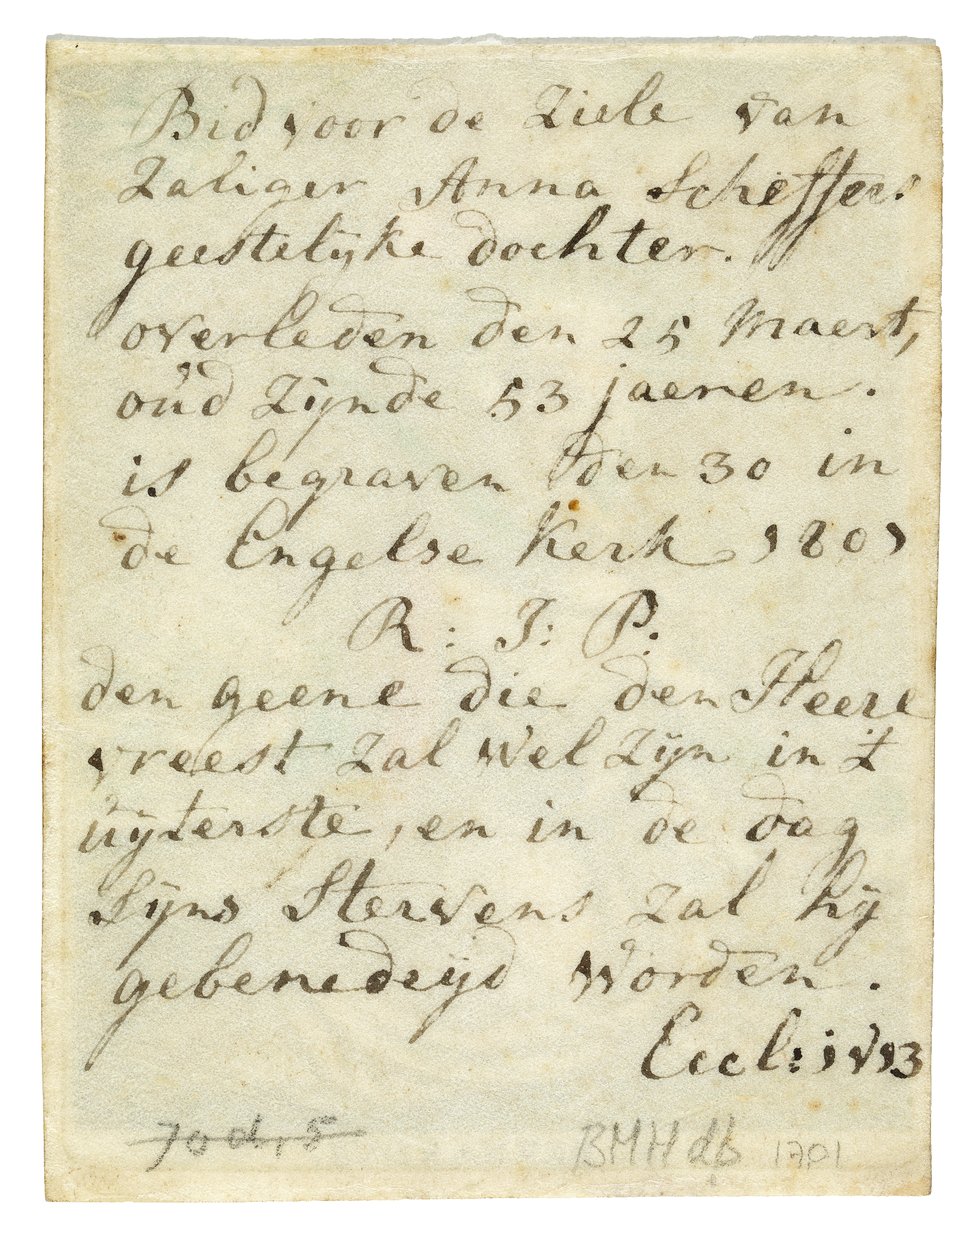 Bid voor de Ziele van
Zaliger Anna Scheffers
geestelijke dochter.
overleden den 25 Maert,
oud Zijnde 53 jaeren.
is begraven den 30 in
de Engelse Kerk 1801
R: I: P:
den geene die den Heere
vreest Zal wel Zijn in 't
uÿterste, en in de dag
Sijns Stervens zal hij
gebenedeijd worden.
Eccl: 1 v 13
BMH db 1701